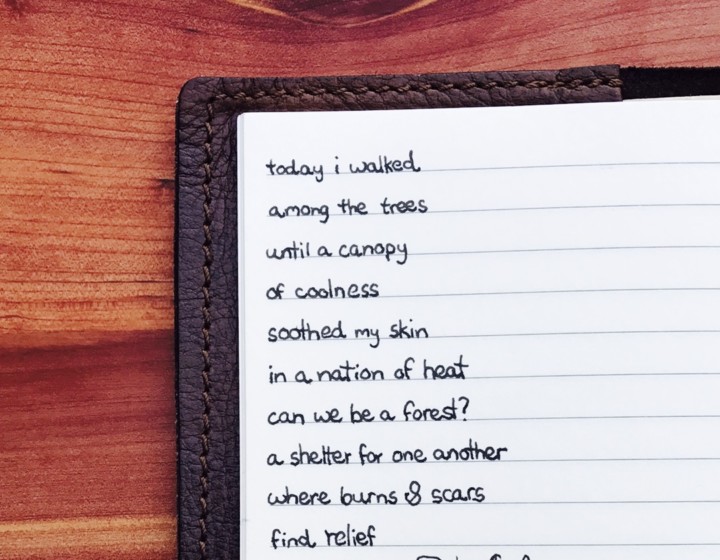 today i walked
among the trees
until a canopy
of coolness
soothed my skin
in a nation of heat
can we be a forest?
a shelter for one another
where burns & scars
find relief